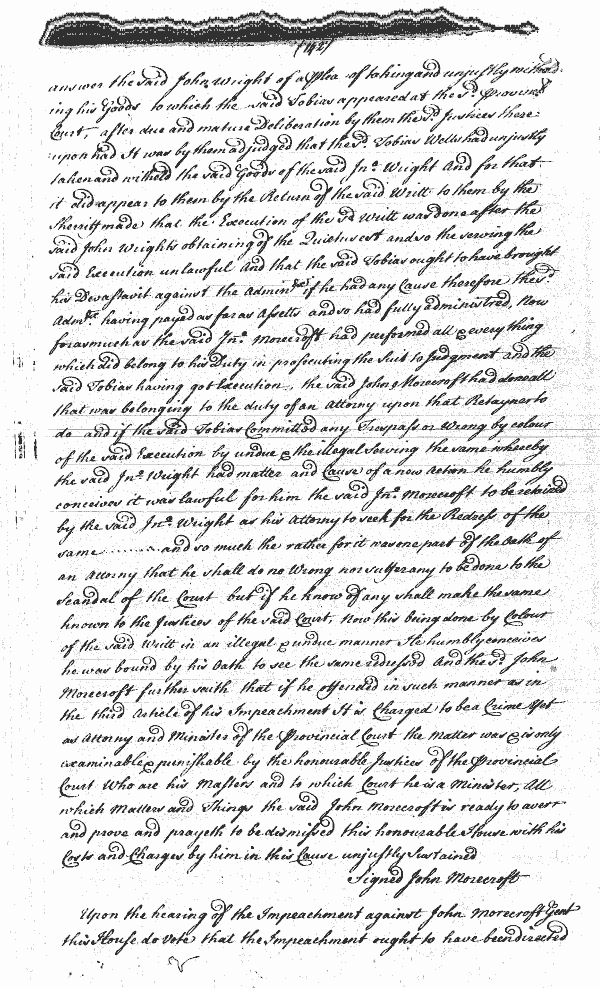 (142)
answer the said John Wright of a plea of taking and unjustly withold-
ing his Goods to which the said Tobias appeared at the sd. Provincll
Court, after due and mature Deliberation by them the sd. Justices there-
upon had It was by them adjudged that the sd. Tobias Wells had unjustly
taken and witheld the said Goods of the said Jno. Wright And for that
it did appear to them by the Return of the said Writt to them by the
Sherriff made that the Execution of the sd Writt was done after the
said John Wrights obtaining of the Quietus est and so the serving the
said Execution unlawful And that the said Tobias ought to have brought
his Devastavit against the Admintrx if he had any Cause therefore the sd.
Admrx. having payed as far as Assetts and so had fully administred, Now
forasmuch as the said Jno. Morecroft had performed all & every thing
which did belong to his Duty in prosecuting the Suit to Judgment and the
said Tobias having got Execution, the said John Morecroft had done all
that was belonging to the duty of an Attorny upon that Retayner to
do and if the said Tobias Committed any Trespass or Wrong by colour
of the said Execution by undue & the illegal Serving the same whereby
the said Jno. Wright had matter and Cause of a new Action he humbly
conceives it was lawful for him the said Jno. Morecroft to be retained
by the said Jno. Wright as his Attorny to seek for the Redress of the
same ........ and so much the rather for it was one part of the Oath of
an Attorny that he shall do no Wrong nor suffer any to be done to the
Scandal of the Court but if he know of any shall make the same
known to the Justices of the said Court. Now this being done by Colour
of the said Writt in an illegal & undue manner He humbly conceives
he was bound by his Oath to see the same redressed And the sd. John
Morecroft further saith that if he offended in such manner as in
the third Article of his Impeachment It is Charged to be a Crime Yet
as Attorny and Minister of the Provincial Court the matter was & is only
examinable & punishable by the honourable Justices of the Provincial
Court Who are his Masters and to which Court he is a Minister, All
which Matters and Things the said John Morecroft is ready to averr
and prove and prayeth to be dismissed this honourable House with his
Costs and Charges by him in this Cause unjustly Sustained
Signed John Morecroft
Upon the hearing of the Impeachment against John Morecroft Gent
this House do Vote that the Impeachment ought to have been directed